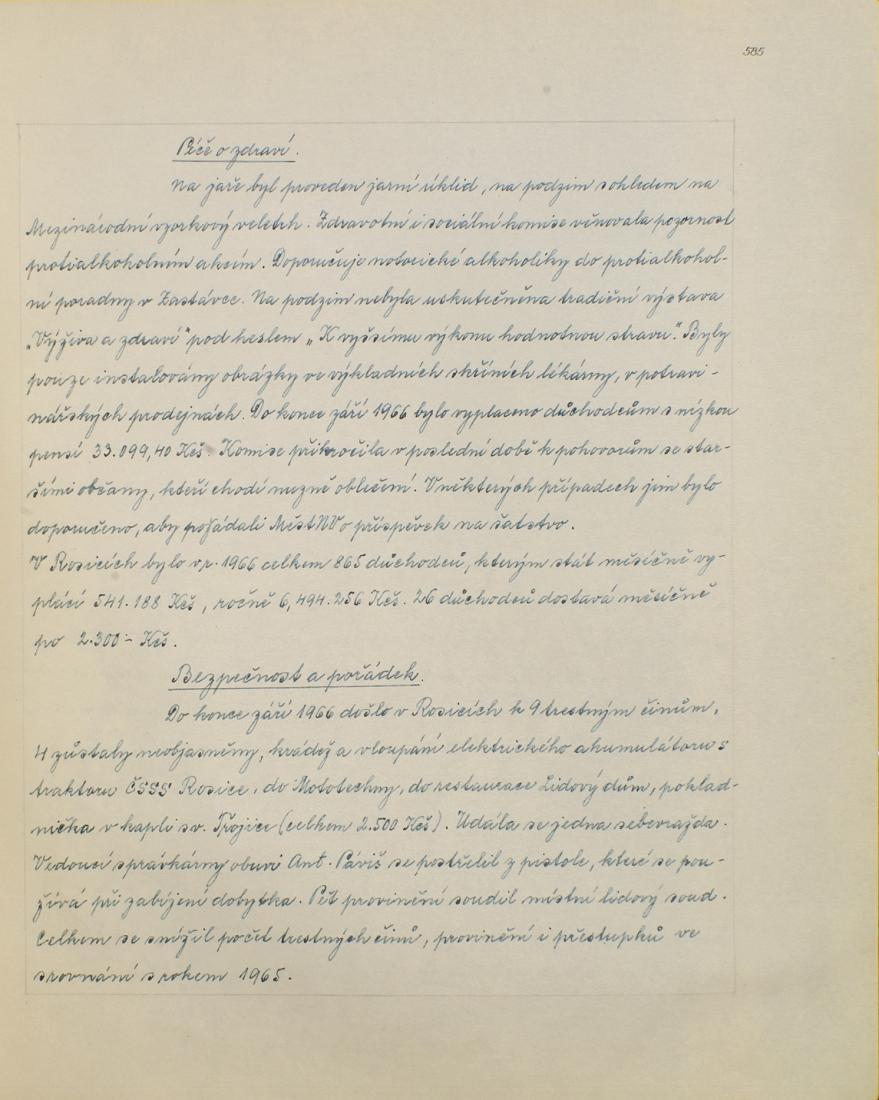 585
Péče o zdraví.
Na jaře byl proveden jarní úklid, na podzim s ohledem na
Mezinárodní vzorkový veletrh. Zdravotní i sociální komise věnovala pozornost
protialkoholním akcím. Doporučuje notorické alkoholiky do protialkohol-
ní poradny v Zastávce. Na podzim nebyla uskutečněna tradiční výstava
„Výživa a zdraví" pod heslem „K vyššímu výkonu hodnotnou stravu". Byly
pouze instalovány obrázky ve výkladních skříních lékárny, v potravi-
nářských prodejnách. Do konce září 1966 bylo vyplaceno důchodcům s nízkou
pensí 33.099,40 Kčs. Komise přikročila v poslední době k pohovorům se star-
šími občany, kteří chodí nuzně oblečeni. V některých případech jim bylo
doporučeno, aby požádali MěstNV o příspěvek na šatstvo.
V Rosicích bylo v r. 1966 celkem 865 důchodců, kterým stát měsíčně vy-
plácí 541.188 Kčs, ročně 6,494.256 Kčs. 26 důchodců dostává měsíčně
po 2.300:- Kčs.
Bezpečnost a pořádek.
Do konce září 1966 došlo v Rosicích k 9 trestným činům,
4 zůstaly neobjasněny, krádež a vloupání elektrického akumulátoru s
traktoru ČSSS Rosice, do Mototechny, do restaurace Lidový dům, poklad-
nička v kapli sv. Trojice (celkem 2.500 Kčs). Udála se jedna sebevražda.
Vedoucí správkárny obuvi Ant. Páviš se postřelil z pistole, které se pou-
žívá při zabíjení dobytka. Pět provinění soudil místní lidový soud.
Celkem se snížil počet trestných činů, provinění i přestupků ve
srovnání s rokem 1965.